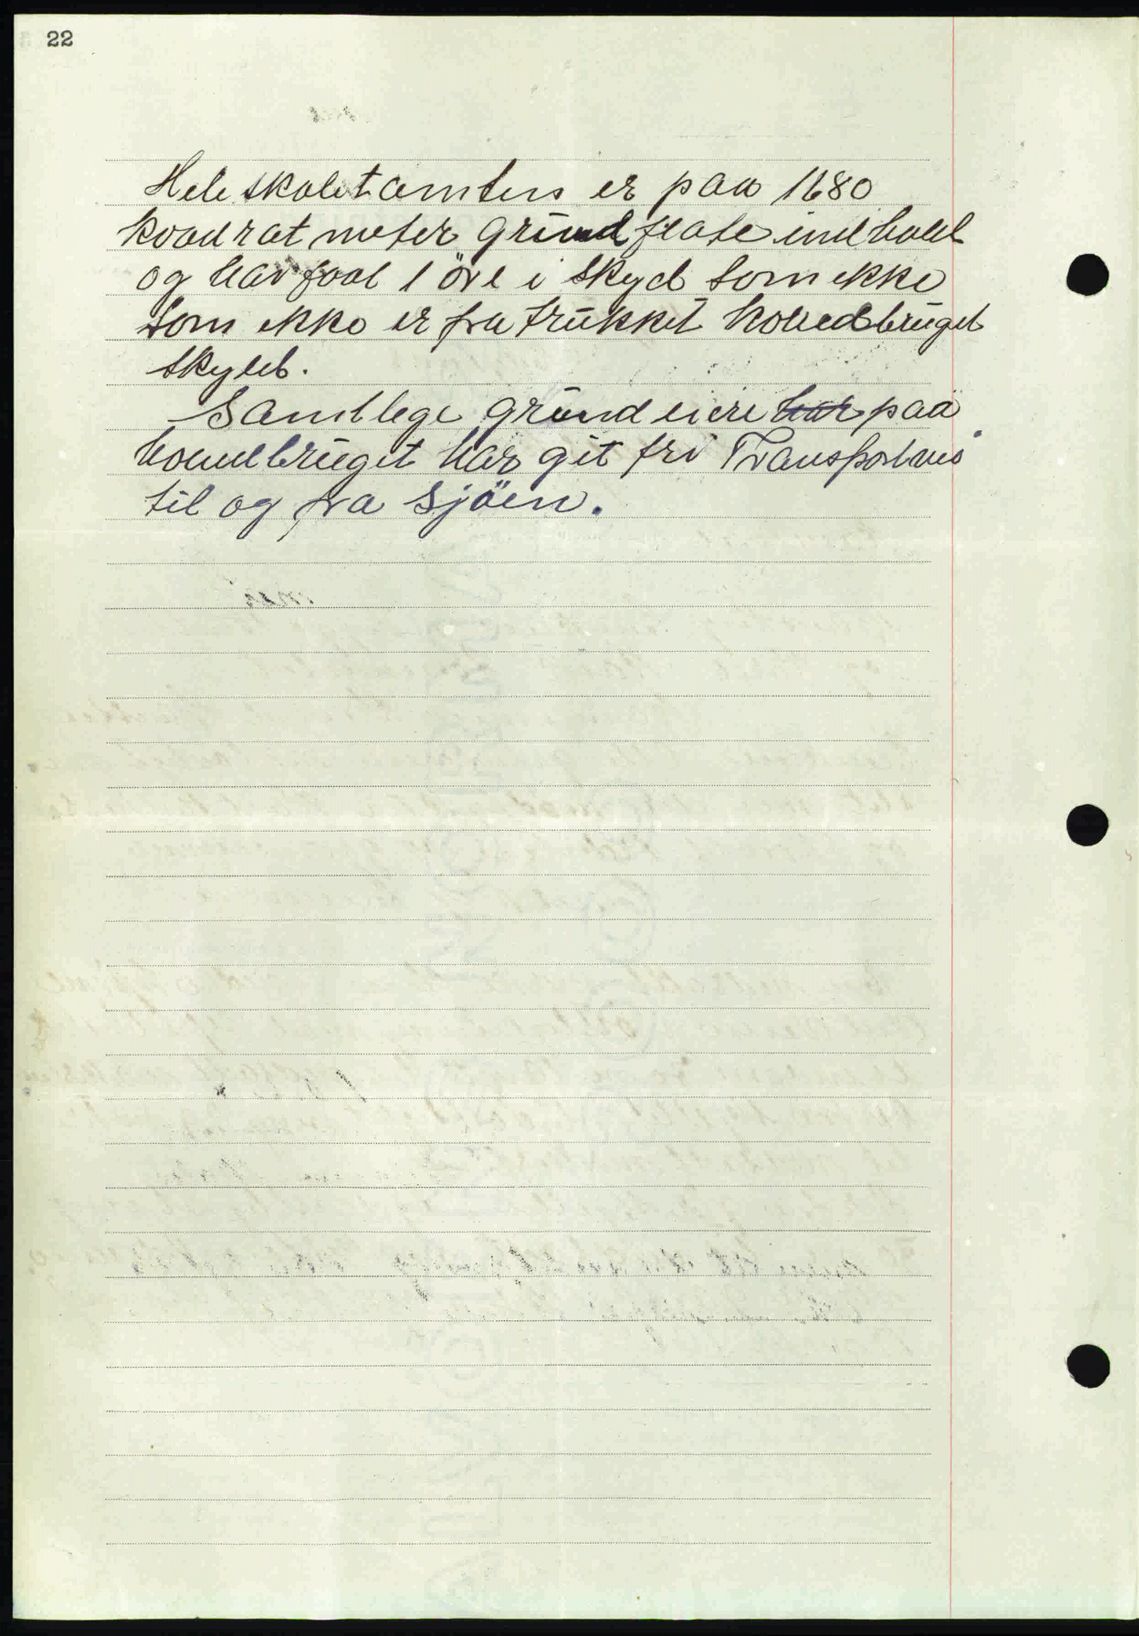 22
Hele skoletomten er paa 1680
kvadrat meter grund flate indhold
og har faat 1 öre i skyd som ikke
som ikke er fra trukket hovedbruget
skyld.
Samtlege grund eiere har paa
hovedbruget har git fri Transportvei
til og fra Sjöen.